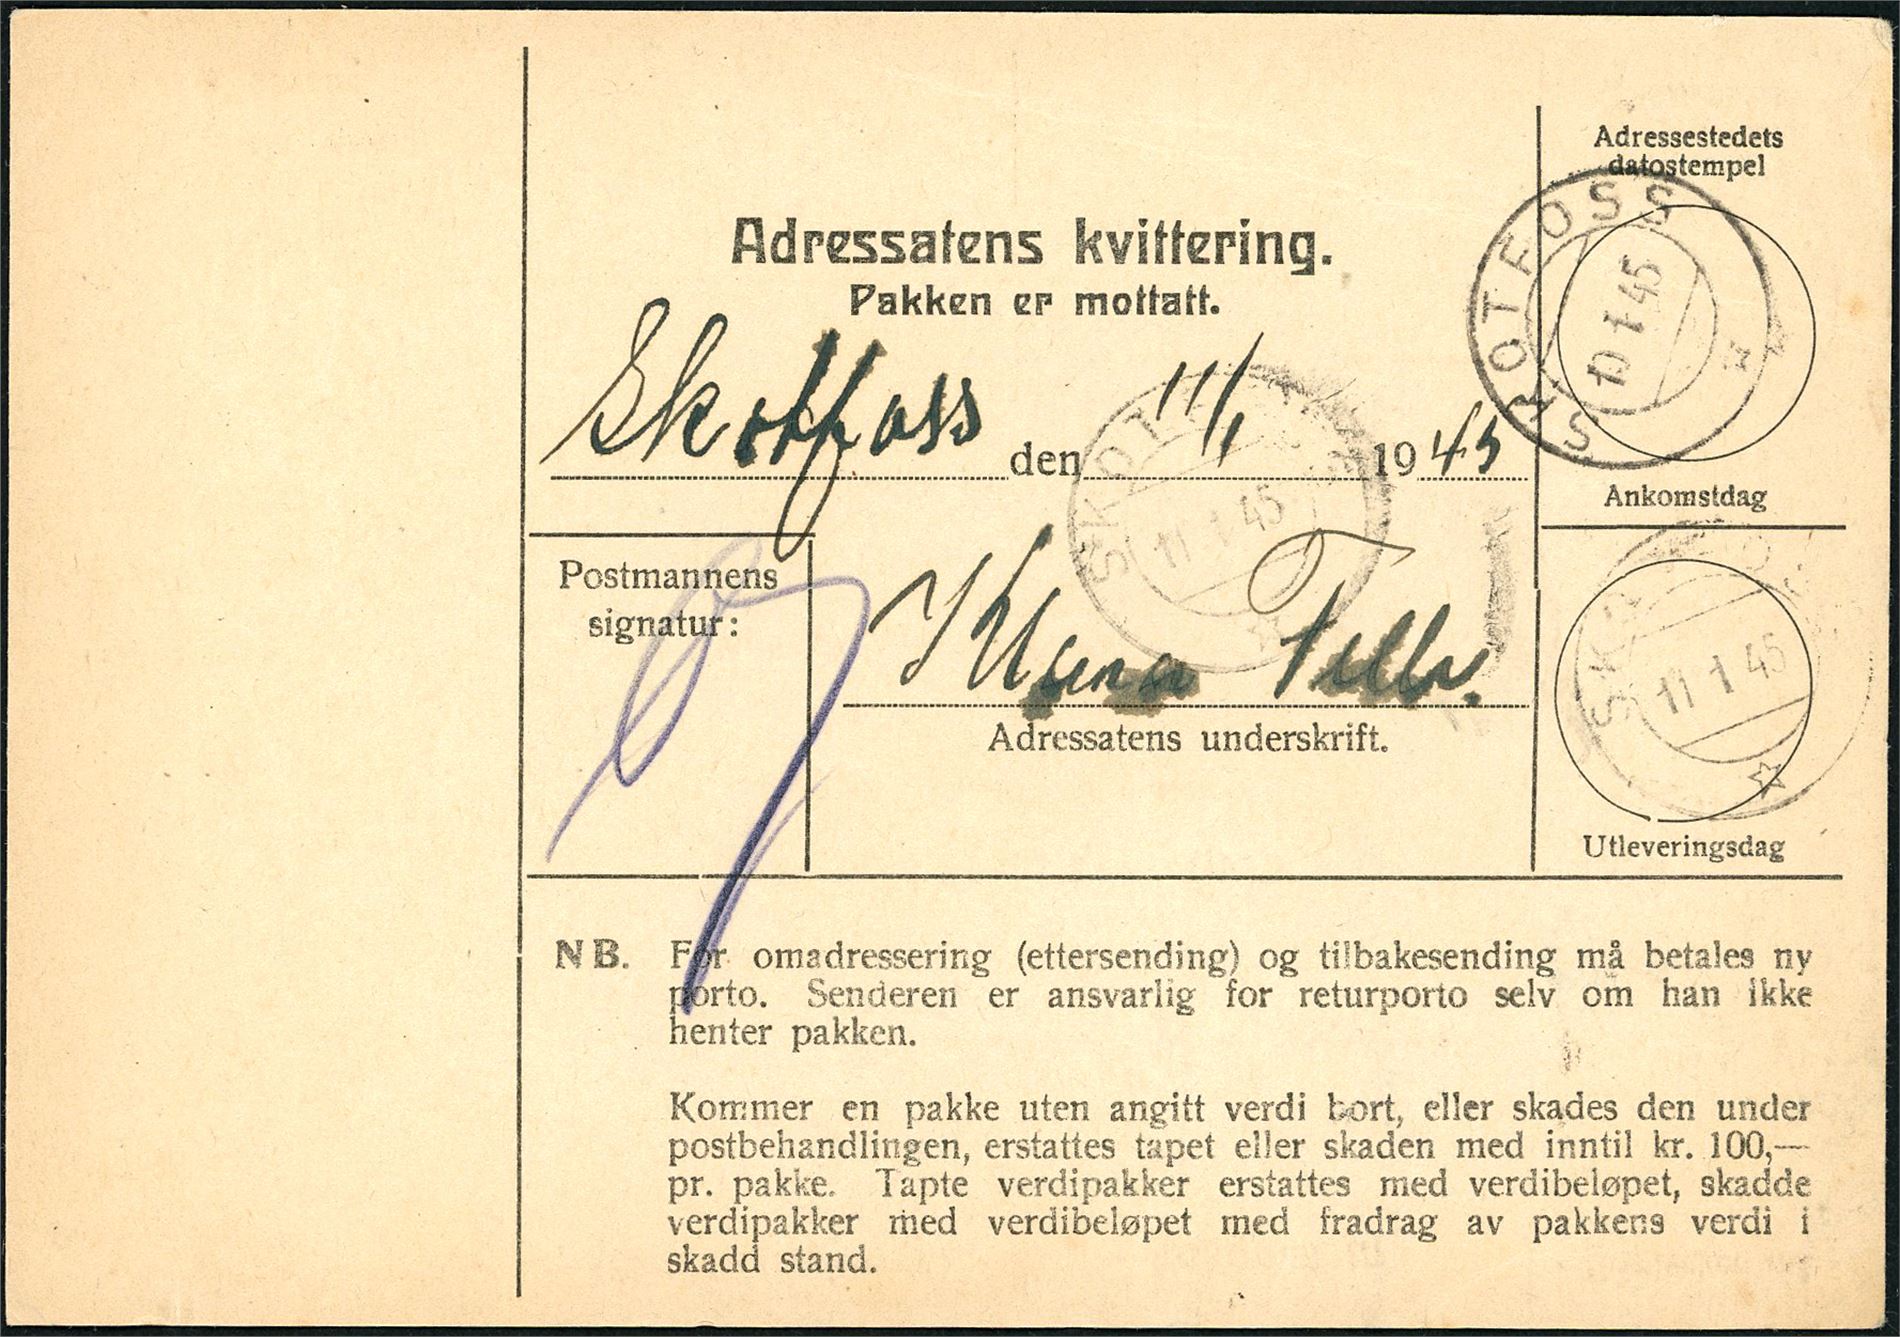 Adressestedets
datostempel
Adressatens kvittering.
Pakken er mottatt.
SKOTFOSS
10 1 45
Skotfoss den 11/1 1945
SKOT
11 1 45
Ankomstdag
Postmannens
signatur:
Klara
Adressatens underskrift.
SKO
11 1 45
Utleveringsdag
NB. For omadressering (ettersending) og tilbakesending må betales ny
porto. Senderen er ansvarlig for returporto selv om han ikke
henter pakken.
Kommer en pakke uten angitt verdi bort, eller skades den under
postbehandlingen, erstattes tapet eller skaden med inntil kr. 100,—
pr. pakke. Tapte verdipakker erstattes med verdibeløpet, skadde
verdipakker med verdibeløpet med fradrag av pakkens verdi i
skadd stand.